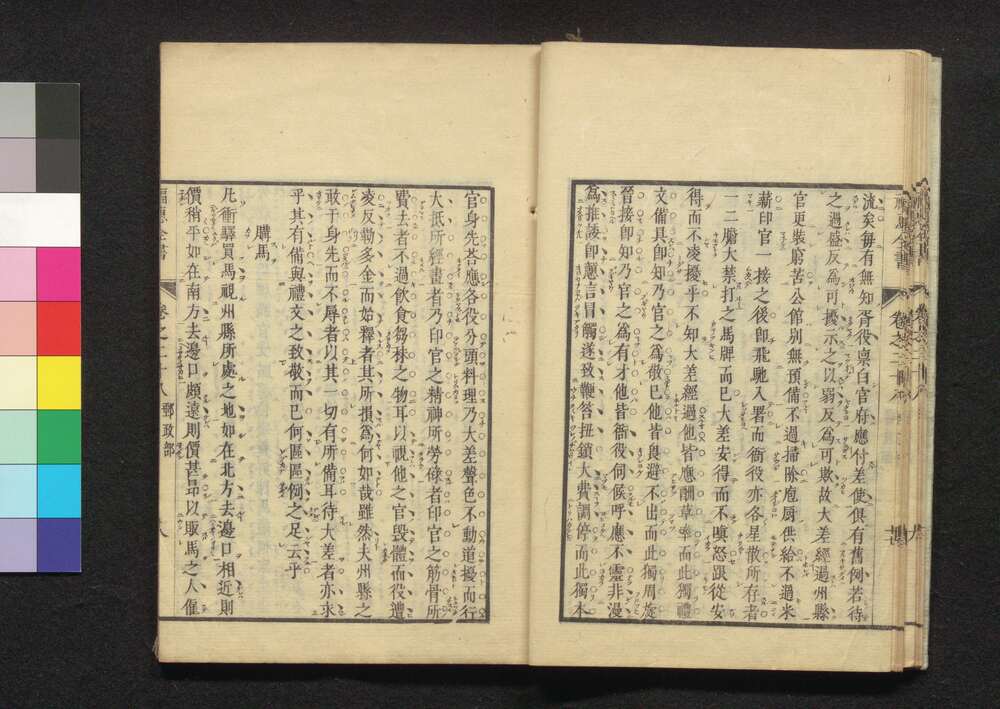 流矣毎有無知胥役禀白官府應付差使俱有舊例若待
之過盛反為可擾示之以弱反為可欺故大差經過州縣
官更裝窮苦公館別無預備不過掃除庖厨供給不過米
薪印官一接之後卽飛馳入署而衙役亦各星散所存者
一二騰大禁打之馬牌而已大差安得而不嗔怒跟從安
得而不凌擾乎不知大差經過他皆應酬草率而此獨禮
文備具卽知乃官之為敬已他皆畏避不出而此獨周旋
晉接卽知乃官之為有才他皆衙役伺候呼應不靈非漫
為推諉卽䡖言冒觸遂致鞭笞扭鎖大費調停而此獨本
官身先荅應各役分頭料理乃大差聲色不動道擾而行
大抵所經畫者乃印官之精神所勞徐者印官之筋骨所
費去者不過飮食芻秣之物耳以視他之官毀體而役遭
凌反勒多金而始釋者其所損為何如哉雖然夫州縣之
敢于身先而不辱者以其一切有所備耳待大差者亦求
乎其有備與禮文之致敬而已何區區例之足云乎
購馬
凡衝驛買馬視州縣所處之地如在北方去邊口相近則
價稍平如在南方去邊口頗遠則價甚昻以販馬之人僱
福惠全書
卷之二十八
郵政部
八